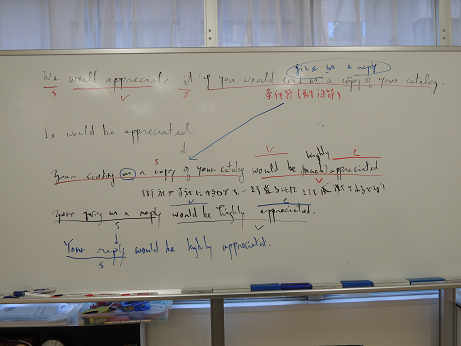 give me a reply
We would appreciate it if you would send us a copy of your catalog.
S V O 条件節(副詞節)
It would be appreciated
S V highly C
Your sending us a copy of your catalog would be (much) appreciated
V
V C
Your giving me a reply would be highly appreciated.
S V
Your reply would be highly appreciated.
S